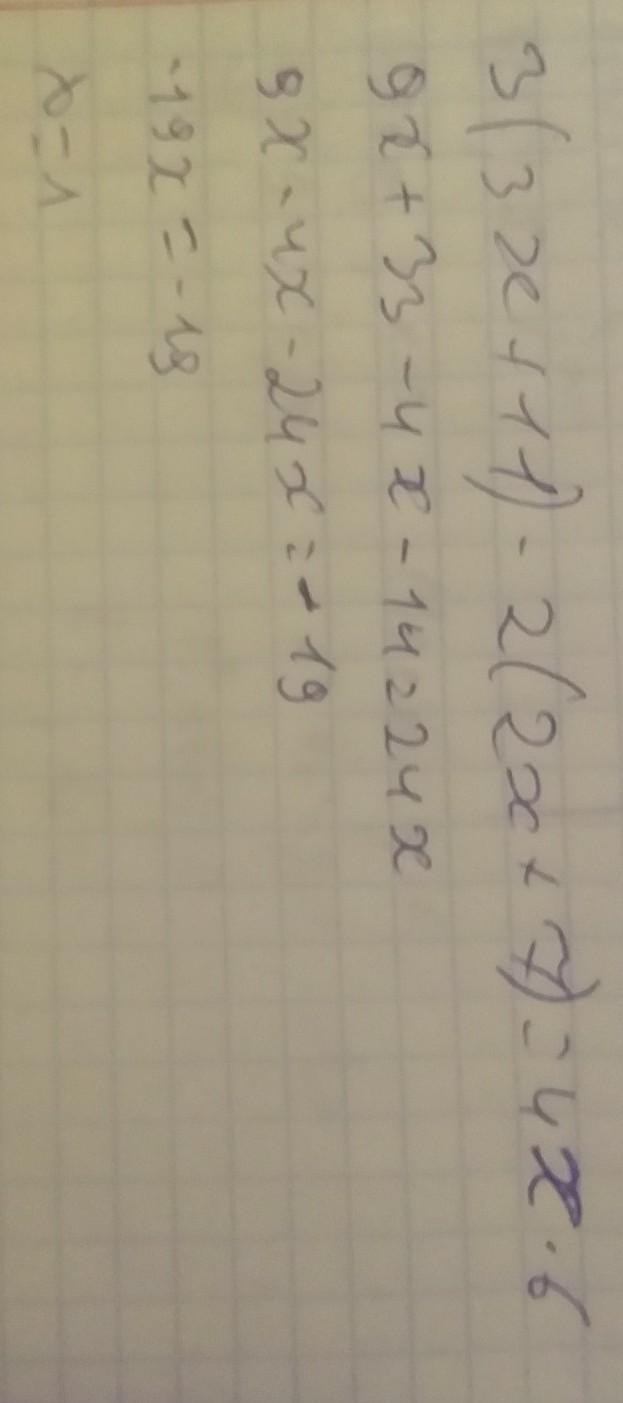 3(3x+11)-2(2x+7)=4x·6
9x+33-4x-14=24x
9x-4x-24x=-19
-19x=-19
x=1